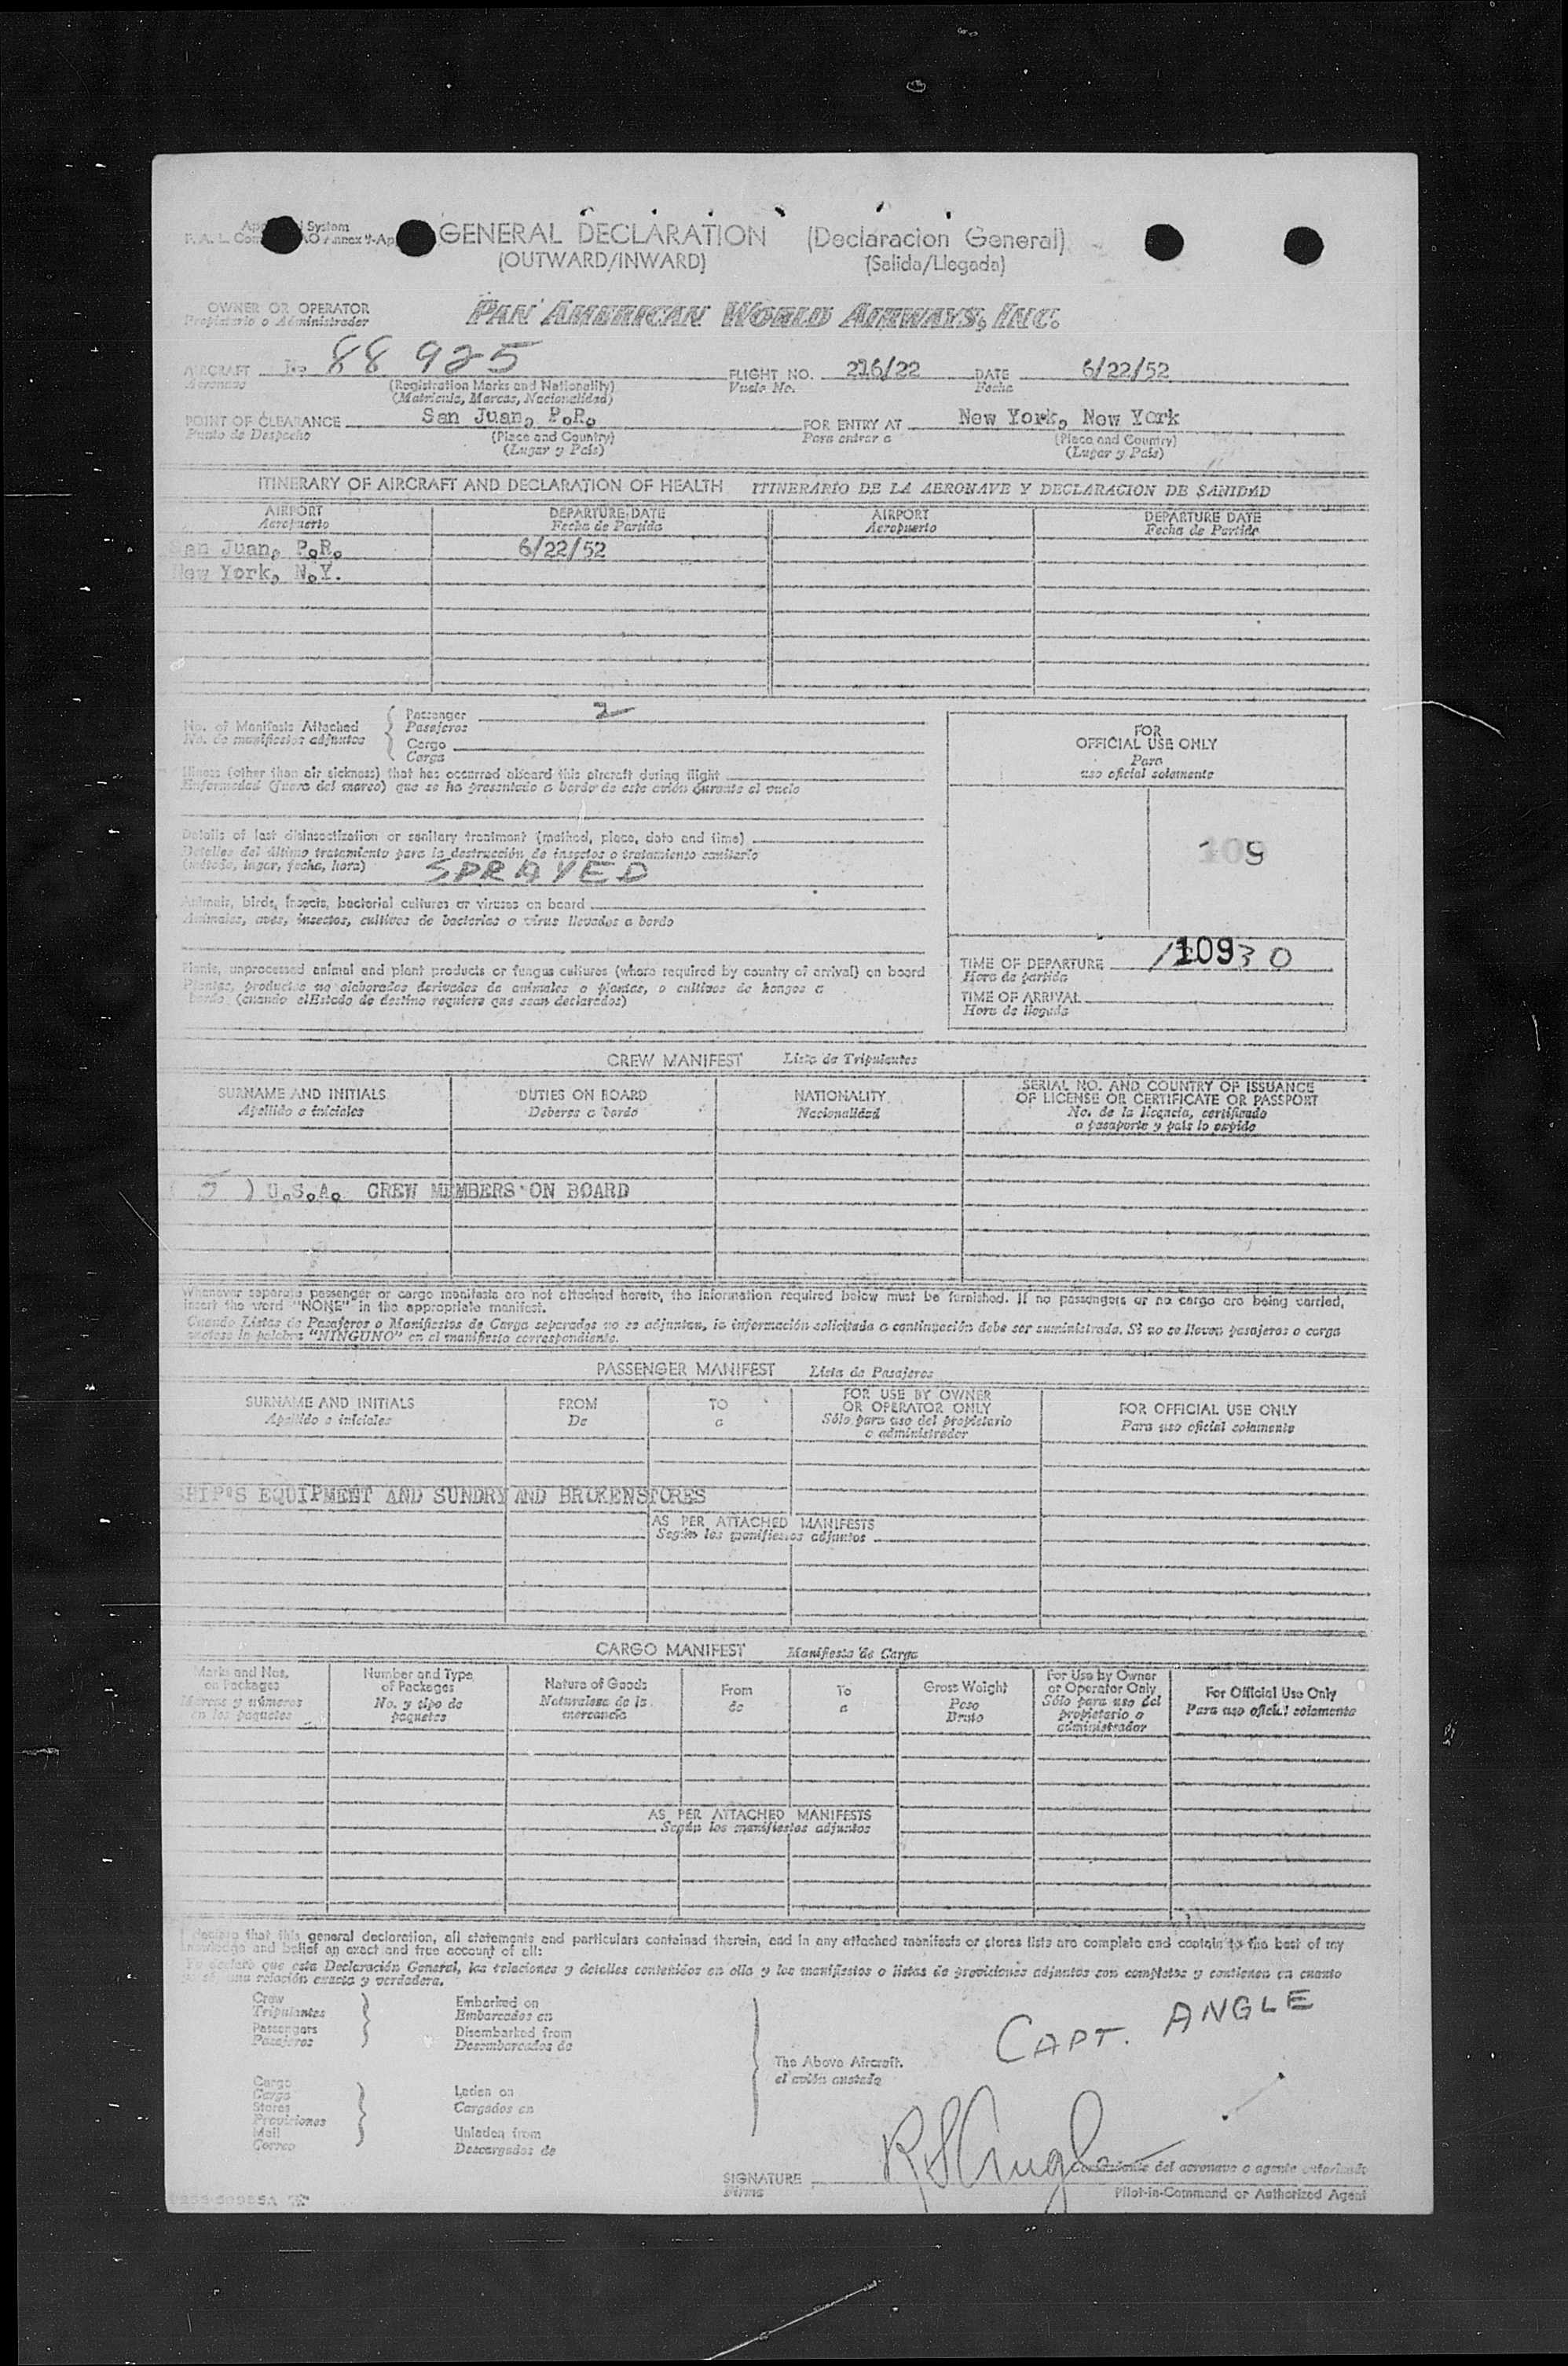 GENERAL DECLARATION (Declaracion General)
(OUTWARD/INWARD) (Salida/Llegada)
OWNER OR OPERATOR
Propietario o Administrador
PAN AMERICAN WORLD AIRWAYS, INC.
AIRCRAFT No 88925 FLIGHT NO. 216/22 DATE 6/22/52
Aeronave (Registration Marks and Nationality) Vuelo No. Fecha
(Matricula, Marcas, Nacionalidad)
POINT OF CLEARANCE San Juan, P.R. FOR ENTRY AT New York, New York
Punto de Despacho (Place and Country) Para entrar a (Place and Country)
(Lugar y Pais) (Lugar y Pais)
ITINERARY OF AIRCRAFT AND DECLARATION OF HEALTH ITINERARIO DE LA AERONAVE Y DECLARACION DE SANIDAD
AIRPORT DEPARTURE DATE AIRPORT DEPARTURE DATE
Aeropuerto Fecha de Partida Aeropuerto Fecha de Partida
San Juan, P.R. 6/22/52
New York, N.Y.
No. of Manifests Attached Passenger 2
No. de manifiestos adjuntos Pasajeros
Cargo
Carga
Illness (other than air sickness) that has occurred aboard this aircraft during flight
Enfermedad (fuera del mareo) que se ha presentado a bordo de este avión durante el vuelo
Details of last disinsectization or sanitary treatment (method, place, date and time)
Detalles del último tratamiento para la destrucción de insectos o tratamiento sanitario
(método, lugar, fecha, hora) SPRAYED
Animals, birds, insects, bacterial cultures or viruses on board
Animales, aves, insectos, cultivos de bacterias o virus llevados a bordo
Plants, unprocessed animal and plant products or fungus cultures (where required by country of arrival) on board
Plantas, productos no elaborados derivados de animales o plantas, o cultivos de hongos a
bordo (cuando el Estado de destino requiere que sean declarados)
FOR
OFFICIAL USE ONLY
Para
uso oficial solamente
109
TIME OF DEPARTURE 109 30
Hora de partida
TIME OF ARRIVAL
Hora de llegada
CREW MANIFEST Lista de Tripulantes
SURNAME AND INITIALS DUTIES ON BOARD NATIONALITY SERIAL NO. AND COUNTRY OF ISSUANCE
OF LICENSE OR CERTIFICATE OR PASSPORT
Apellido e iniciales Deberes a bordo Nacionalidad No. de la licencia, certificado
o pasaporte y pais lo expido
5 ) U.S.A. CREW MEMBERS ON BOARD
Whenever separate passenger or cargo manifests are not attached hereto, the information required below must be furnished. If no passengers or no cargo are being carried,
insert the word "NONE" in the appropriate manifest.
Cuando Listas de Pasajeros o Manifiestos de Carga separados no se adjuntan, la información solicitada a continuación debe ser suministrada. Si no se llevan pasajeros o carga
anótese la palabra "NINGUNO" en el manifiesto correspondiente.
PASSENGER MANIFEST Lista de Pasajeros
SURNAME AND INITIALS FROM TO FOR USE BY OWNER
OR OPERATOR ONLY FOR OFFICIAL USE ONLY
Apellido e iniciales De a Sólo para uso del propietario
o administrador Para uso oficial solamente
SHIP'S EQUIPMENT AND SUNDRY AND BROKENSTORES
AS PER ATTACHED MANIFESTS
Según los manifiestos adjuntos
CARGO MANIFEST Manifiesto de Carga
Marks and Nos.
on Packages
Marcas y números
en los paquetes
Number and Type
of Packages
No. y tipo de
paquetes
Nature of Goods
Naturaleza de la
mercancía
From
de
To
a
Gross Weight
Peso
Bruto
For Use by Owner
or Operator Only
Sólo para uso del
propietario o
administrador
For Official Use Only
Para uso oficial solamente
AS PER ATTACHED MANIFESTS
Según los manifiestos adjuntos
I declare that this general declaration, all statements and particulars contained therein, and in any attached manifests or stores lists are complete and contain to the best of my
knowledge and belief an exact and true account of all:
Yo declaro que esta Declaración General, las relaciones y detalles contenidos en ella y los manifiestos o listas de provisiones adjuntos son completos y contienen en cuanto
yo sé una relación exacta y verdadera.
Crew
Tripulantes
Passengers
Pasajeros
Embarked on
Embarcados en
Disembarked from
Desembarcados de
Cargo
Carga
Stores
Provisiones
Mail
Correo
Laden on
Cargados en
Unladen from
Descargados de
The Above Aircraft.
el avión anotado
CAPT. ANGLE
SIGNATURE R S Angle
Firma
Comandante del aeronave o agente autorizado
Pilot-in-Command or Authorized Agent